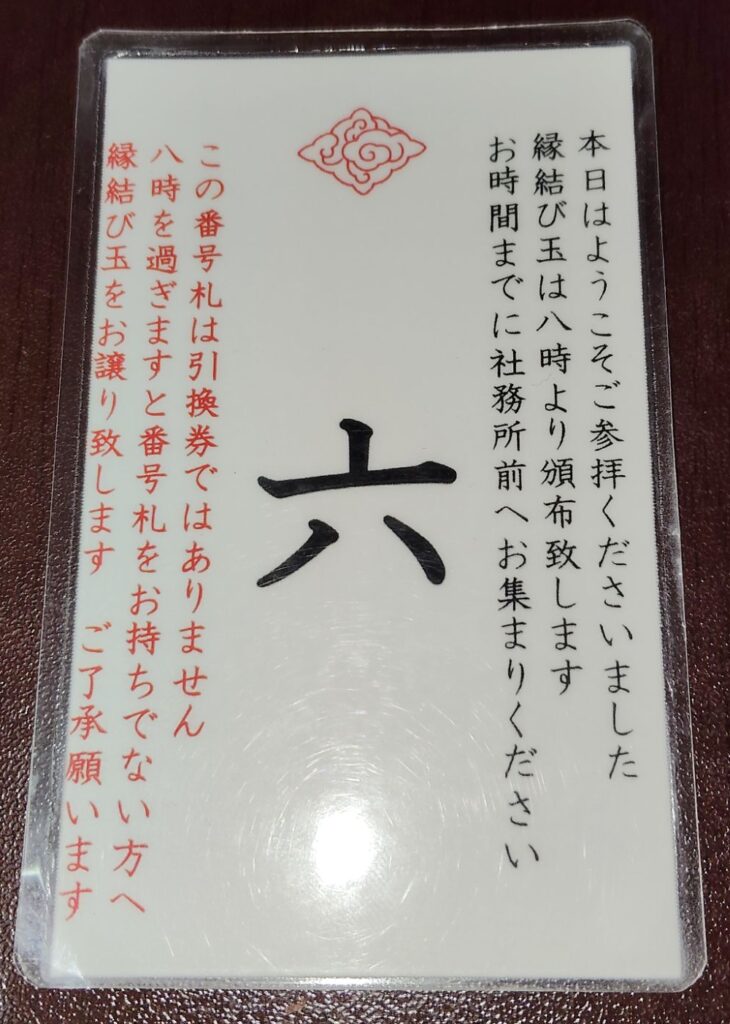 本日はようこそご参拝くださいました
縁結び玉は八時より頒布致します
お時間までに社務所前へお集まりください
六
この番号札は引換券ではありません
八時を過ぎますと番号札をお持ちでない方へ
縁結び玉をお譲り致します　ご了承願います